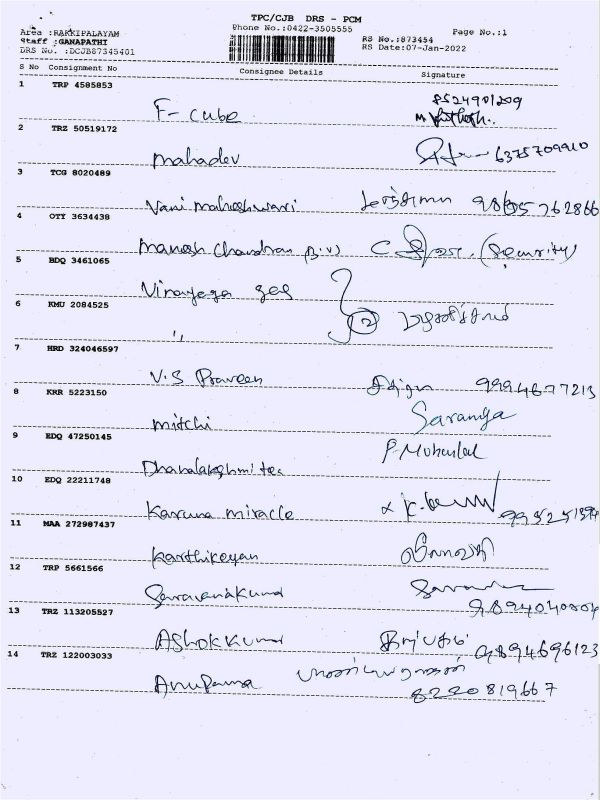 TPC/CJB DRS - PCM
Area :RAKKIPALAYAM
Phone No.:0422-3505555
Page No.:1
Staff :GANAPATHI
RS No.:873454
DRS No. :DCJB87345401
RS Date:07-Jan-2022
S No Consignment No Consignee Details Signature
1 TRP 4585853
F-cube 8524901209
2 TRZ 50519172
Mahadev 6375709910
3 TCG 8020489
Vani maheshwari
4 OTY 3634438
Manesh Chandran (Security)
5 BDQ 3461065
Vinayaga
6 KMU 2084525
" 2
7 HRD 324046597
V.S Praveen 9994677213
8 KRR 5223150
mitchi Saranya
9 EDQ 47250145
Dhanalakshmi tex P. Mohanlal
10 EDQ 22211748
Karuna miracle
11 MAA 272987437
Karthikeyan
12 TRP 5661566
Saravanakumar
13 TRZ 113205527
Ashok Kumar 9894696123
14 TRZ 122003033
Anupama 8220819667